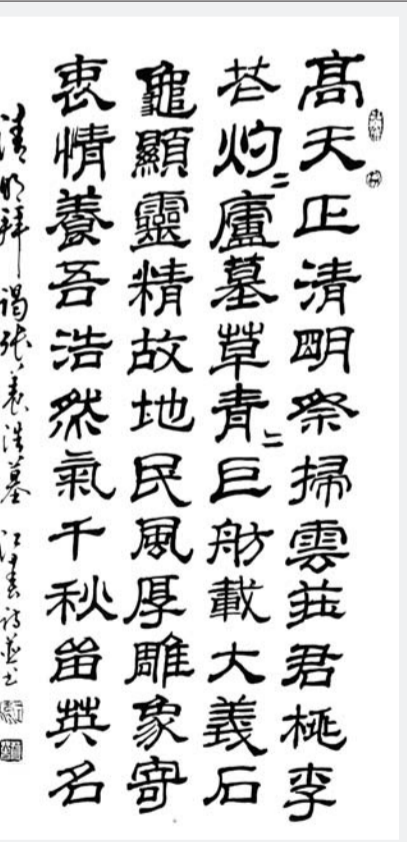 高天正清明祭掃雲莊君桃李
花灼〻廬墓草青〻巨舫載大義石
龜顯靈精故地民風厚雕象寄
衷情養吾浩然氣千秋留英名
清明拜謁张養浩墓 江春詩並书